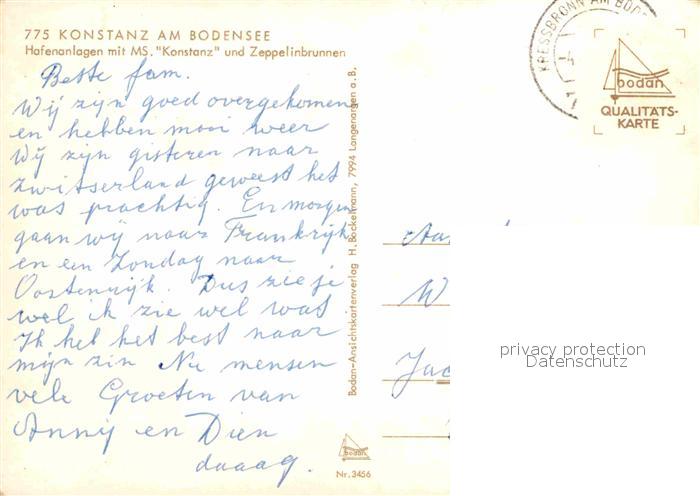 775 KONSTANZ AM BODENSEE
Hafenanlagen mit MS. "Konstanz" und Zeppelinbrunnen
Beste fam.
Wij zijn goed overgekomen
en hebben mooi weer
Wij zijn gisteren naar
zwitserland geweest het
was prachtig. En morgen
gaan wij naar Frankrijk
en en Zondag naar
Oostenrijk. Dus zie je
wel ik zie wel wat
Ik heb het best naar
mijn zin Nu mensen
vele Groeten van
Annij en Dien
daaag.
Bodan-Ansichtskartenverlag H. Bockelmann, 7994 Langenargen a. B.
bodan
Nr. 3456
KRESSBRONN AM BOD
bodan
QUALITÄTS-
KARTE
Aa
W
Jac
privacy protection
Datenschutz